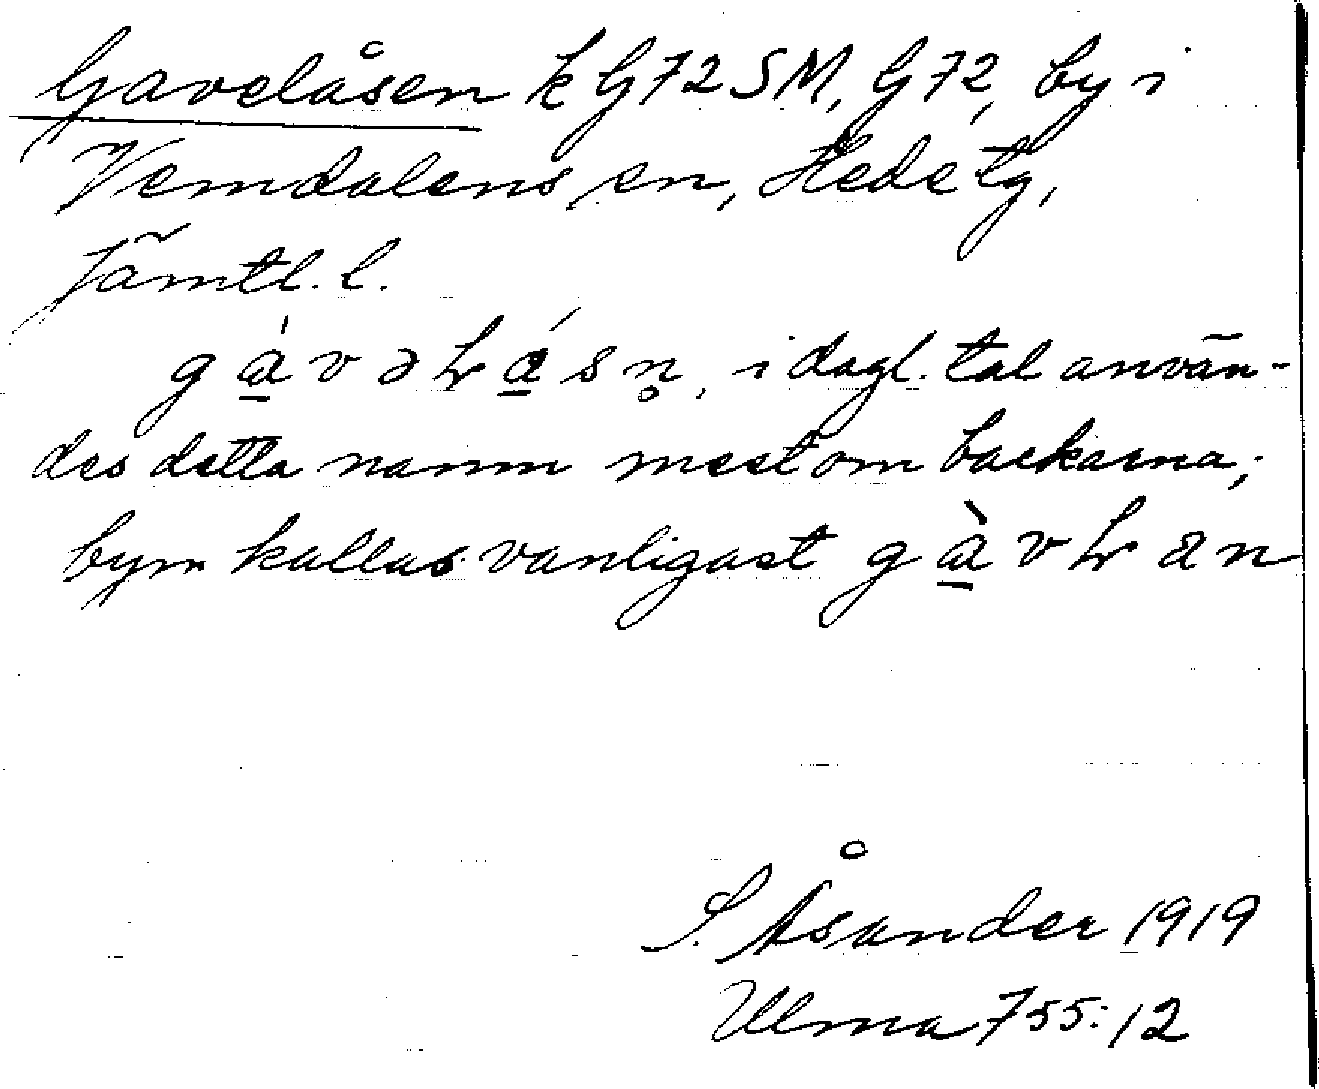 Gavelåsen k G72 SM, G72, by i
Vemdalens sn, Hede tg,
Jämtl. l.
gà̱vəɫá̱sn̥, i dagl. tal använ-
des detta namn mest om backarna;
byn kallas vanligast gà̱vɫan
S. Åsander 1919
Ulma 755:12